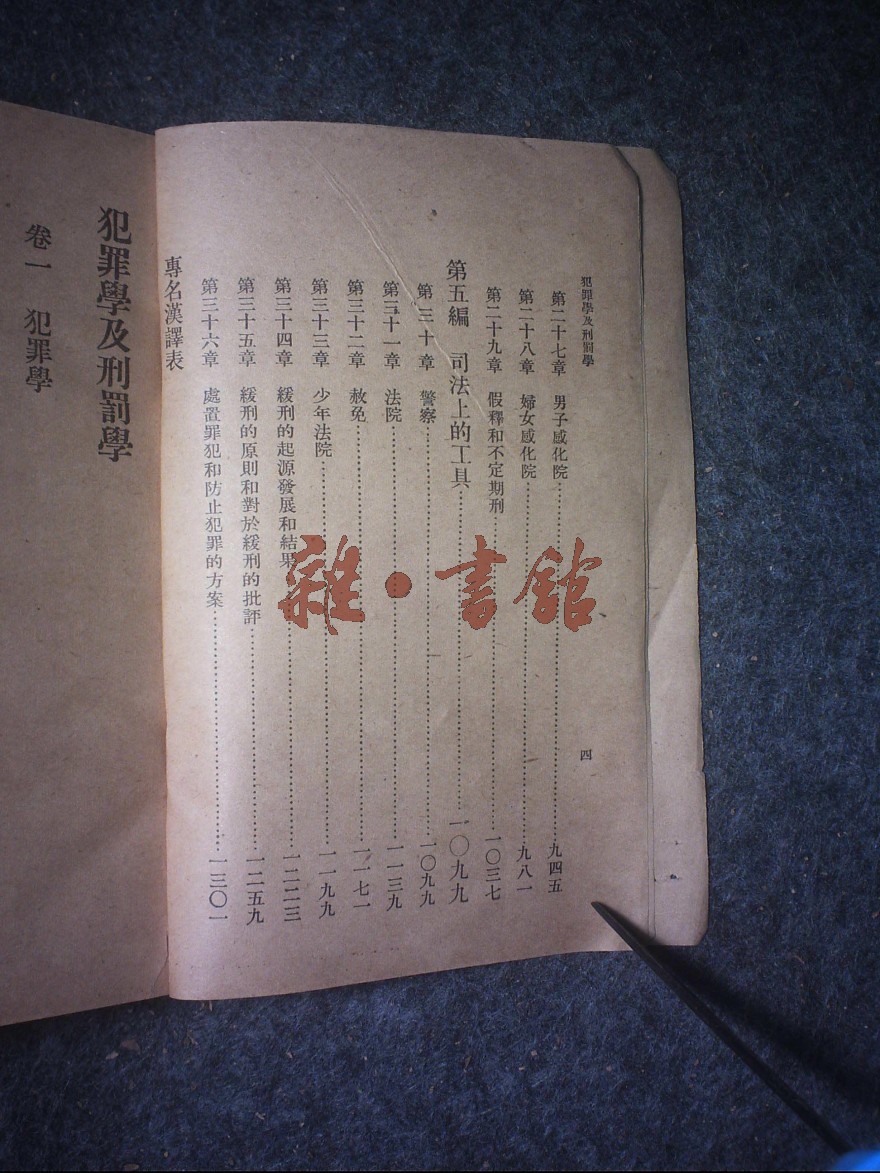 犯罪學及刑罰學
四
第二十七章 男子感化院……九四五
第二十八章 婦女感化院……九八一
第二十九章 假釋和不定期刑……一〇三七
第五編 司法上的工具……一〇九九
第三十章 警察……一〇九九
第三十一章 法院……一一三九
第三十二章 赦免……一一七一
第三十三章 少年法院……一一九九
第三十四章 緩刑的起源發展和結果……一二二三
第三十五章 緩刑的原則和對於緩刑的批評……一二五九
第三十六章 處置罪犯和防止犯罪的方案……一三〇一
專名漢譯表
犯罪學及刑罰學
卷一 犯罪學
雜·書館